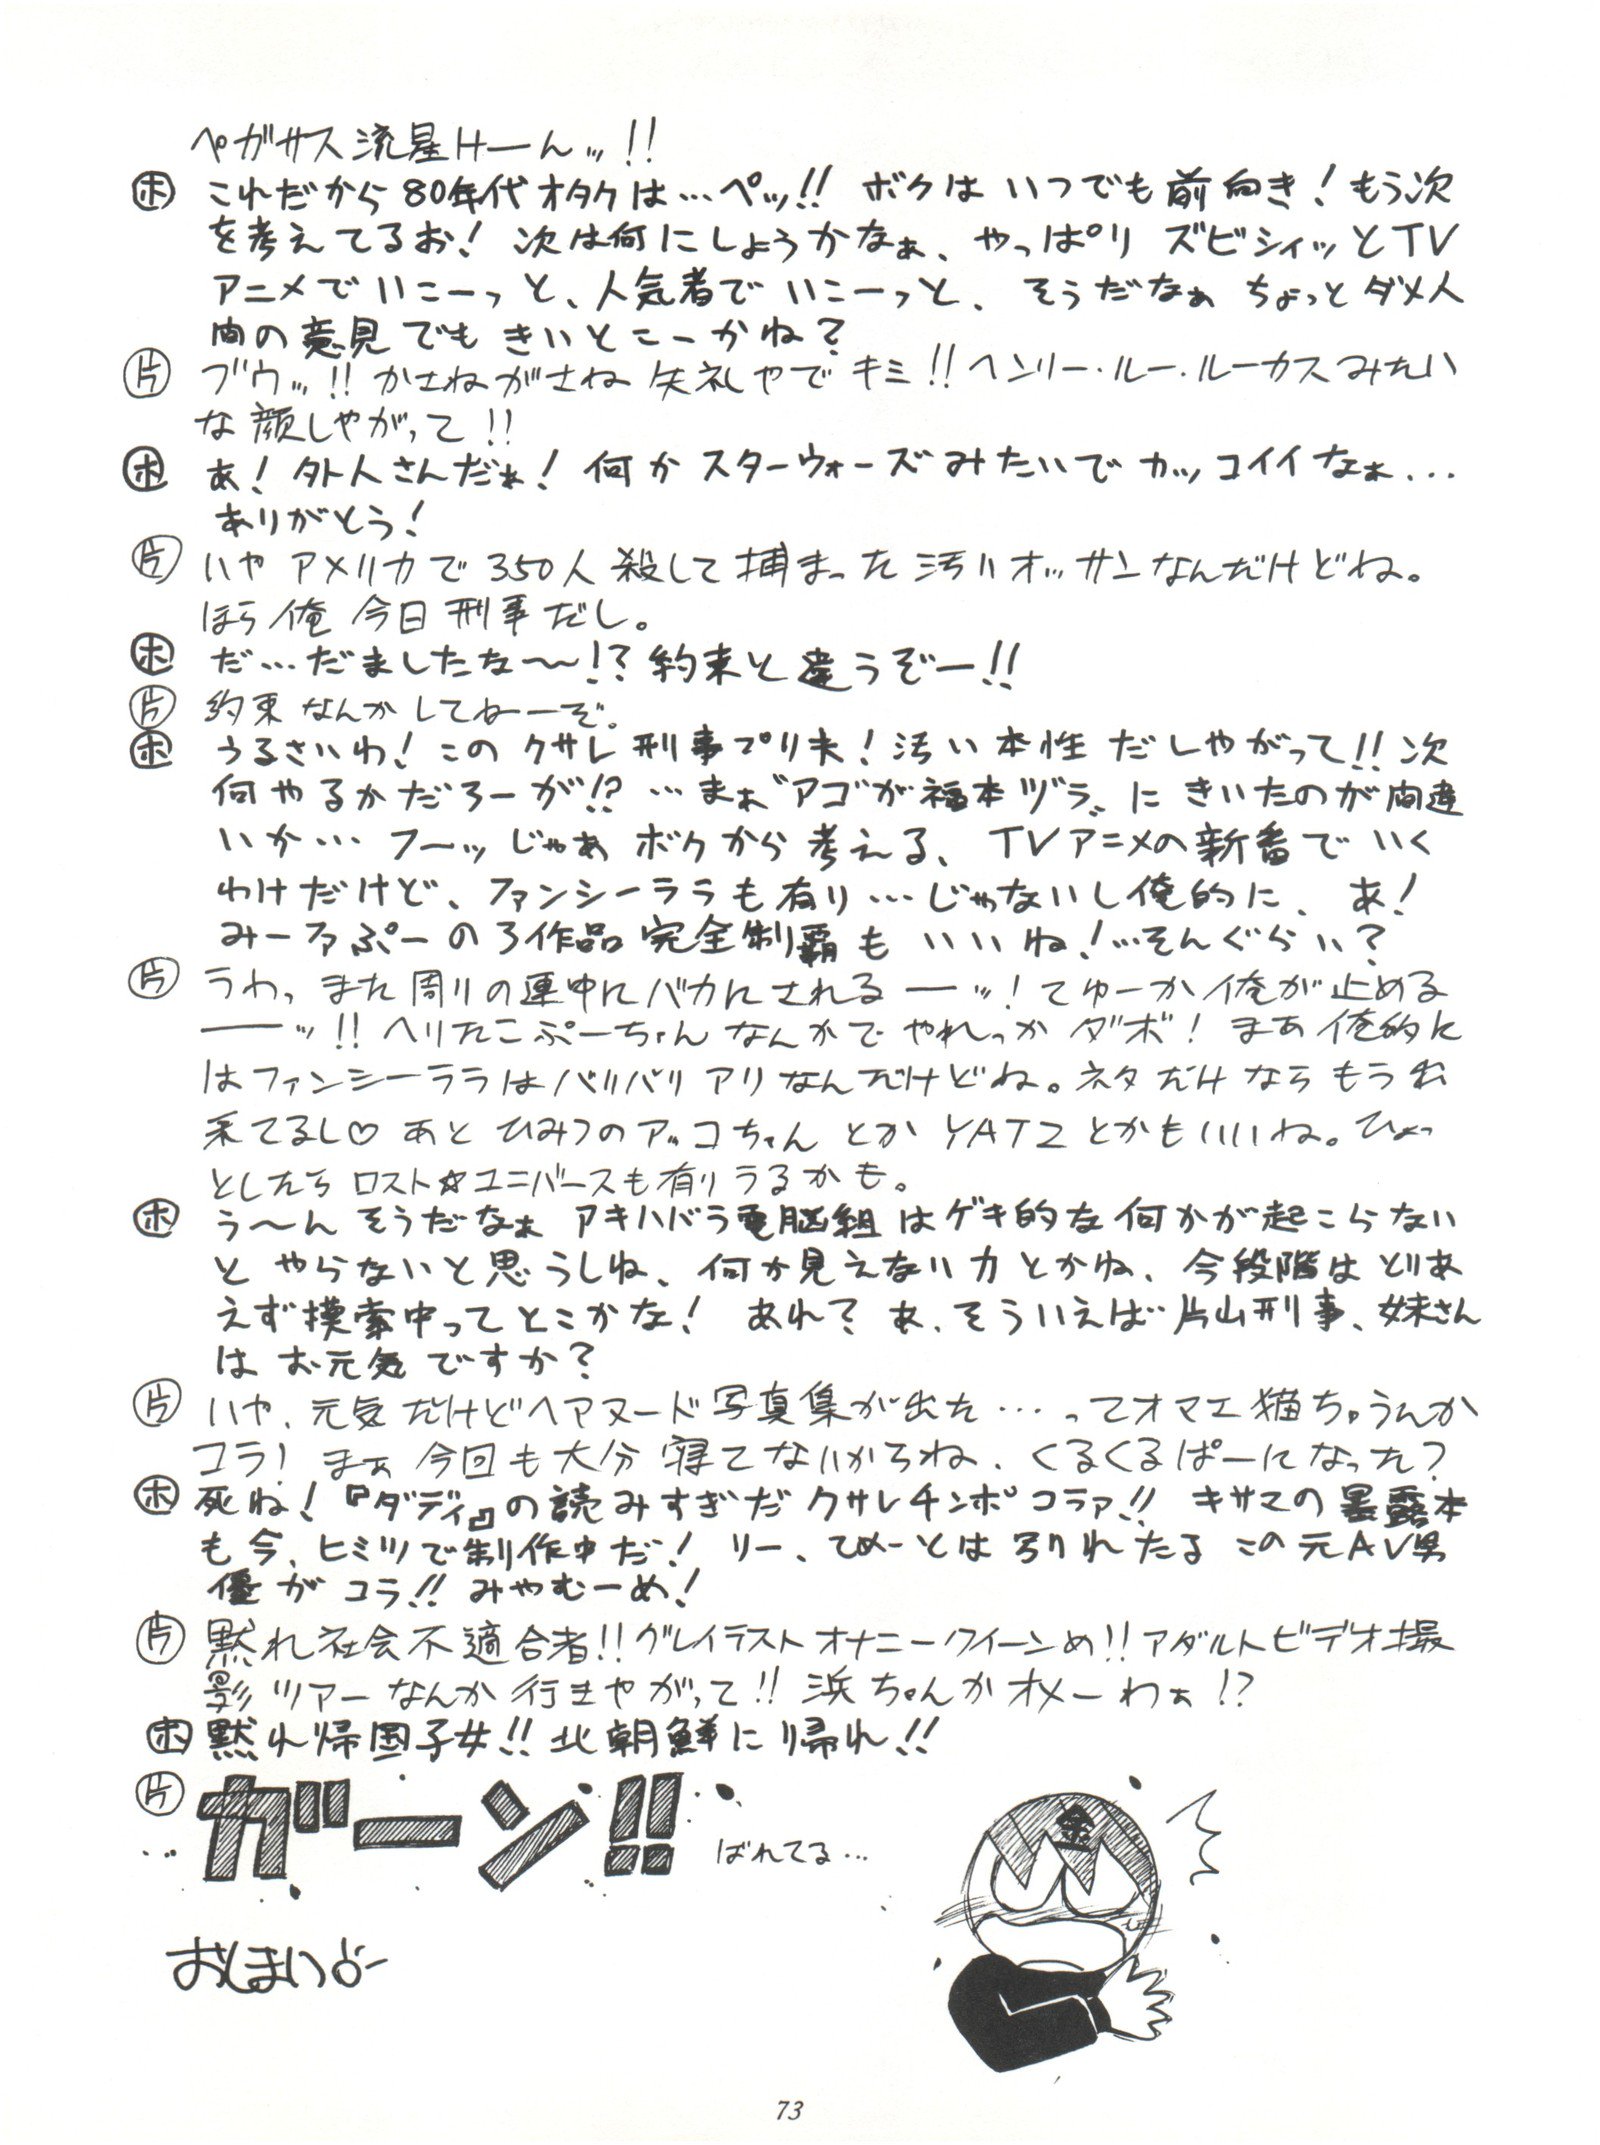 ペガサス流星けーんッ!!
㋭ これだから80年代オタクは…ペッ!! ボクは いつでも前向き!もう次
を考えてるお! 次は何にしょうかなぁ、やっぱり ズビシィッとTV
アニメで いこーっと、人気者で いこーっと、 そうだなぁ ちょっとダメ人
間の意見でも きいとこーかね?
片 ブウッ!! かさねがさね 失礼やで キミ!! ヘンリー・ルー・ルーカスみたい
な顔しやがって!!
㋭ あ! 外人さんだぁ! 何か スターウォーズ みたいで カッコイイなぁ...
ありがとう!
片 いや アメリカで 350人 殺して 捕まった 汚いオッサンなんだけどね。
ほら俺 今日 刑事だし。
㋭ だ…だましたな〜〜!? 約束と違うぞー!!
片 約束なんかしてねーぞ。
㋭ うるさいわ! この クサレ 刑事プリ夫! 汚い本性 だしやがって!! 次
何やるかだろーが!? …まぁ〝アゴが福本ヅラ〟に きいたのが間違
いか… フーッ じゃあ ボクから 考える、 TVアニメの新番で いく
わけだけど、ファンシーララも有り…じゃないし俺的に、 あ!
みーファぷーの3作品 完全制覇も いいね!…そんぐらい?
片 うわっ また周りの連中にバカにされるーーッ! てゆーか俺が止める
ーーッ!! ヘリたこぷーちゃん なんかで やれっか ダボ! まあ俺的に
はファンシーララはバリバリ アリなんだけどね。ネタだけなら もう出
来てるし♡ あと ひみつのアッコちゃん とか YAT2 とかもいいね。ひょっ
としたら ロスト☆ユニバースも有りうるかも。
㋭ う〜ん そうだなぁ アキハバラ電脳組はゲキ的な何かが起こらない
と やらないと思うしね、何か見えない力とかね、今段階は とりあ
えず模索中ってとこかな! あれ? あ、そういえば 片山刑事、妹さん
は お元気ですか?
片 いや、元気だけどヘアヌード写真集が出た…ってオマエ猫ちゅうんか
コラ! まぁ今回も大分 寝てないからね、くるくるぱーになった?
㋭ 死ね!『ダディ』の読みすぎだ クサレチンポ コラァ!! キサマの暴露本
も今、ヒミツで制作中だ! リー、てめーとは 別れたる この元AV男
優が コラ!! みやむーめ!
片 黙れ社会不適合者!! グレイテスト オナニークイーンめ!! アダルトビデオ撮
影ツアーなんか行きやがって!! 浜ちゃんかオメーわぁ!?
㋭ 黙れ帰国子女!! 北朝鮮に帰れ!!
片 ガーン!! ばれてる…
金
おしまい
73